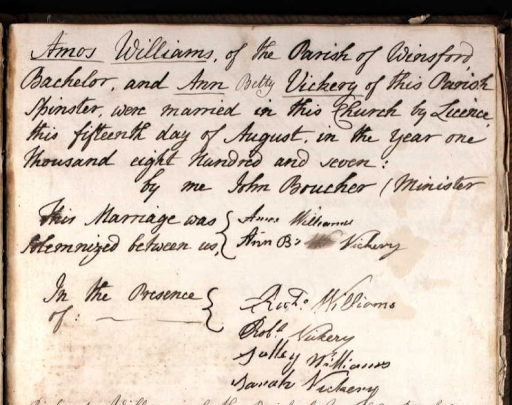 Amos Williams, of the Parish of Winsford,
Bachelor, and Ann Betty Vickery of this Parish
Spinster, were married in this Church by Licence
this fifteenth day of August, in the Year one
thousand eight Hundred and seven:
by me John Boucher / Minister
This Marriage was { Amos Williams
solemnized between us, { Ann B Vickery
In the Presence { Richd. Williams
of:
Robt. Vickery
Salley Williams
Sarah Vickery